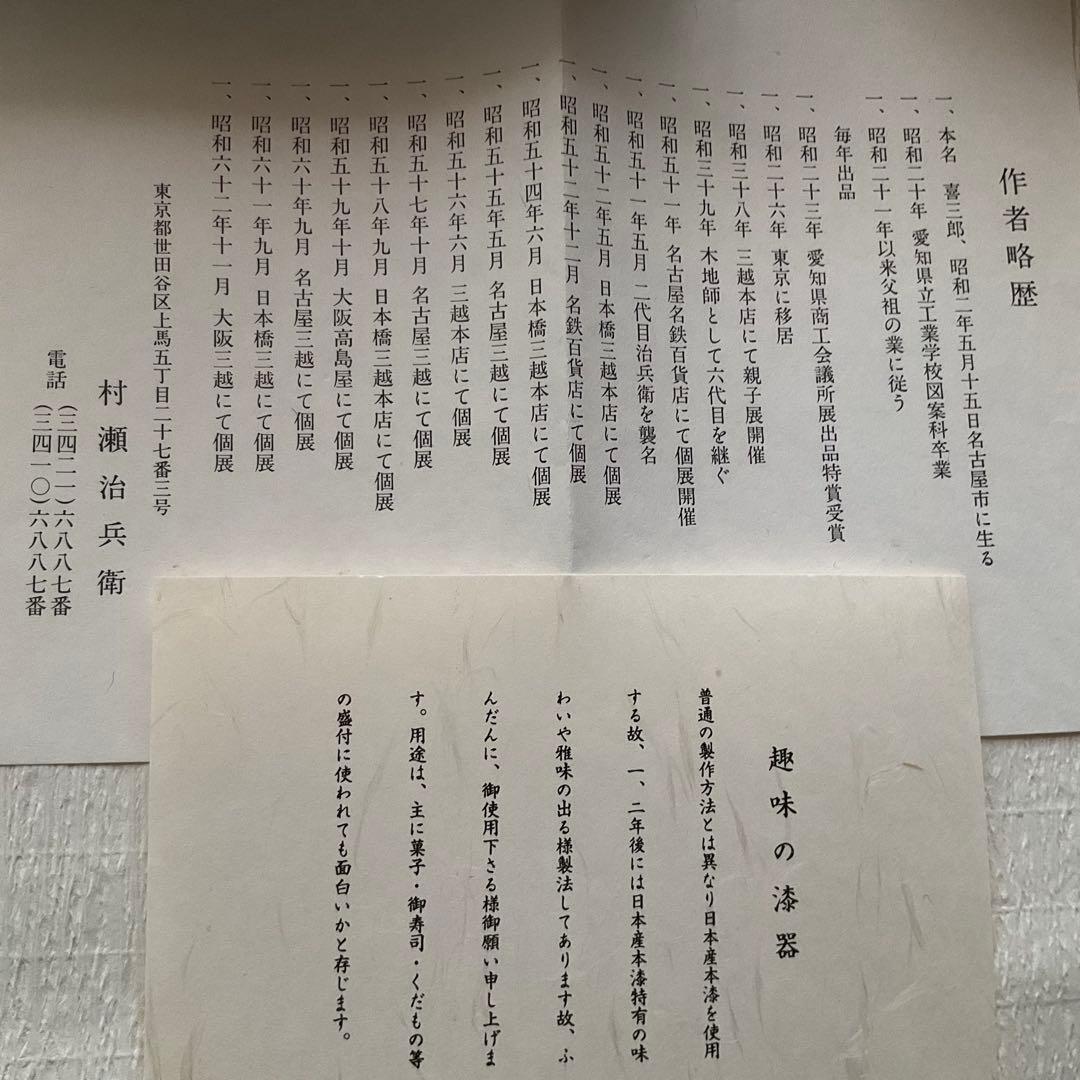 作者略歴
一、本名　喜三郎、昭和二年五月十五日名古屋市に生る
一、昭和二十年　愛知県立工業学校図案科卒業
一、昭和二十一年以来父祖の業に従う
毎年出品
一、昭和二十三年　愛知県商工会議所展出品特賞受賞
一、昭和二十六年　東京に移居
一、昭和三十八年　三越本店にて親子展開催
一、昭和三十九年　木地師として六代目を継ぐ
一、昭和五十一年　名古屋名鉄百貨店にて個展開催
一、昭和五十一年五月　二代目治兵衛を襲名
一、昭和五十二年五月　日本橋三越本店にて個展
一、昭和五十二年十二月　名鉄百貨店にて個展
一、昭和五十四年六月　日本橋三越本店にて個展
一、昭和五十五年五月　名古屋三越にて個展
一、昭和五十六年六月　三越本店にて個展
一、昭和五十七年十月　名古屋三越にて個展
一、昭和五十八年九月　日本橋三越本店にて個展
一、昭和五十九年十月　大阪高島屋にて個展
一、昭和六十年九月　名古屋三越にて個展
一、昭和六十一年九月　日本橋三越にて個展
一、昭和六十二年十一月　大阪三越にて個展
東京都世田谷区上馬五丁目二十七番三号
村瀬治兵衛
電話　（三四二一）六八八七番
（三四一〇）六八八七番
趣味の漆器
普通の製作方法とは異なり日本産本漆を使用
する故、一、二年後には日本産本漆特有の味
わいや雅味の出る様製法してあります故、ふ
んだんに、御使用下さる様御願い申し上げま
す。用途は、主に菓子・御寿司・くだもの等
の盛付に使われても面白いかと存じます。